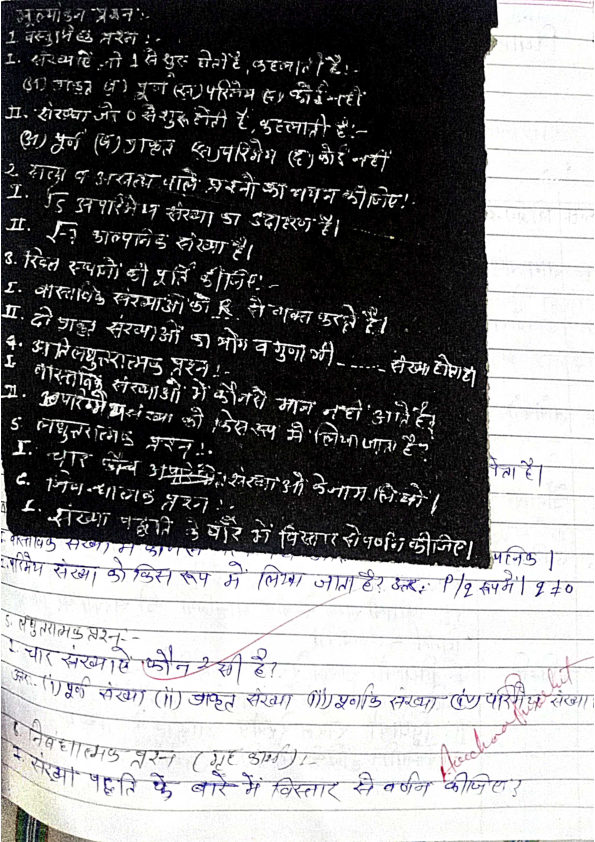 मूल्यांकन प्रश्न:-
1. वस्तुनिष्ठ प्रश्न:-
I. संख्याएं जो 1 से शुरू होती है, कहलाती है:-
(अ) प्राकृत (ब) पूर्ण (स) परिमेय (द) कोई नहीं
II. संख्या जो 0 से शुरू होती है, कहलाती है:-
(अ) पूर्ण (ब) प्राकृत (स) परिमेय (द) कोई नहीं
2. सत्य व असत्य वाले प्रश्नों का चयन कीजिए:-
I. √5 अपरिमेय संख्या का उदाहरण है।
II. काल्पनिक संख्या है।
3. रिक्त स्थानों की पूर्ति कीजिए:-
I. वास्तविक संख्याओं को R से व्यक्त करते है।
II. दो प्राकृत संख्याओं का योग व गुणा भी ------ संख्या होता है।
4. अतिलघुत्तरात्मक प्रश्न:-
I. वास्तविक संख्याओं में कौनसे मान नहीं आते है?
II. परिमेय संख्या को किस रूप में लिखा जाता है?
5. लघुत्तरात्मक प्रश्न:-
I. चार संख्याओं के नाम लिखो।
6. निबन्धात्मक प्रश्न:-
I. संख्या पद्धति के बारे में विस्तार से वर्णन कीजिए।
होता है।
I. वास्तविक संख्या में
II. परिमेय संख्या को किस रूप में लिखा जाता है? उत्तर: P/q रूप में। q≠0
5. लघुत्तरात्मक प्रश्न:-
I. चार संख्याएं कौन 2 सी है?
उत्तर: (i) पूर्ण संख्या (ii) प्राकृत संख्या (iii) पूर्णांक संख्या (iv) परिमेय संख्या
6. निबंधात्मक प्रश्न (गृह कार्य):-
I. संख्या पद्धति के बारे में विस्तार से वर्णन कीजिए?